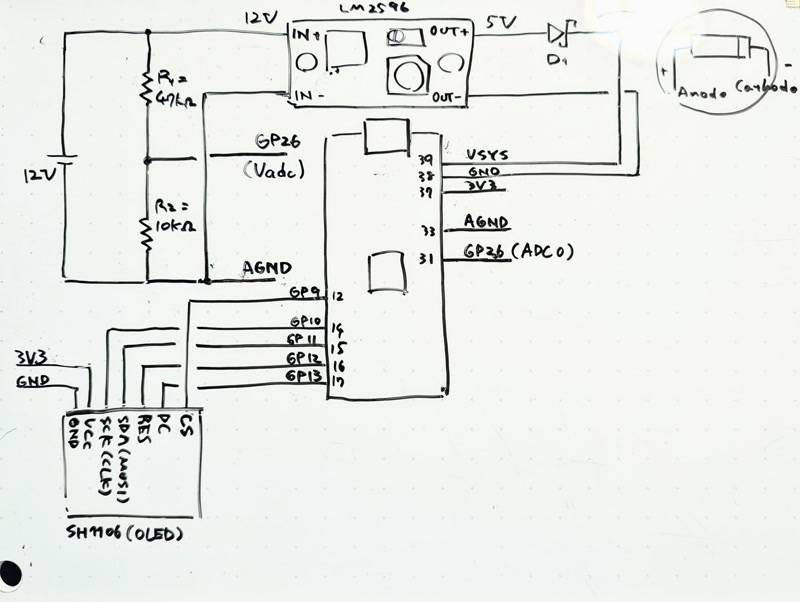 LM2596
12V
IN+
OUT+
5V
IN-
OUT-
D1
+
-
Anodo
Cathodo
R1=
47kΩ
GP26
(Vadc)
12V
R2=
10kΩ
AGND
39 VSYS
38 GND
37 3V3
33 AGND
31 GP26 (ADC0)
GP9 12
GP10 14
GP11 15
GP12 16
GP13 17
3V3
GND
GND
VCC
SCK(CLK)
SDA(MOSI)
RES
DC
CS
SH1106(OLED)